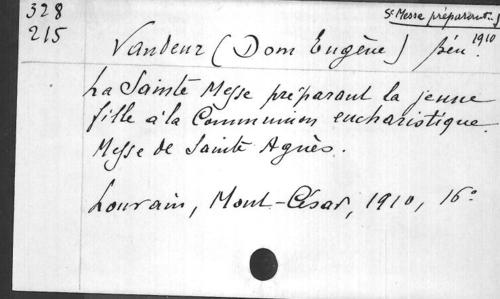 328
215
Ste Messe préparant.
1910
Vandeur (Dom Eugène) bén.
La Sainte Messe préparant la jeune
fille à la Communion eucharistique.
Messe de Sainte Agnès.
Louvain, Mont-César, 1910, 16°